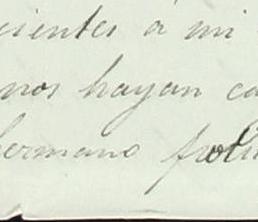 cientes á mi
nos hayan ca
hermano